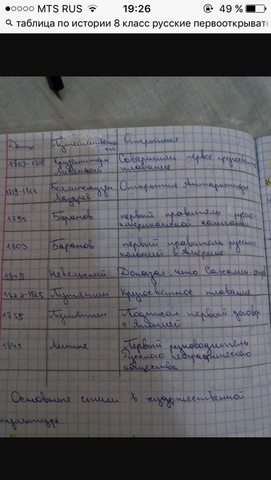 MTS RUS 19:26 49 %
таблица по истории 8 класс русские первооткрыват
Даты Открытие
1803-1806 Крузенштерн Совершили первое
Лисянский плавание
1819-1821 Беллинсгаузен Открытие Антарктиды
Лазарев
Баранов первый правитель
американской компании
1803 Баранов первый правитель русских
колоний в Америке
Невельский Доказал, что Сахалин
Путятин Кругосветное плавание
Путятин Подписал первый договор
с Японией
1845 Литке Первый руководитель
Русского географического
общества
Основные стили в художественной
культуре